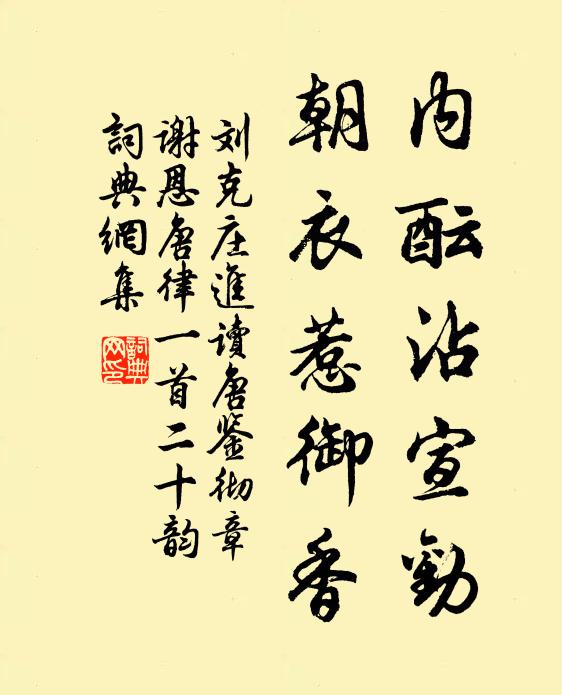 内酝沾宣劝
朝衣惹御香
刘克庄進讀唐鉴彻章
谢恩唐律一首二十韵
詞典網集
詞典网印